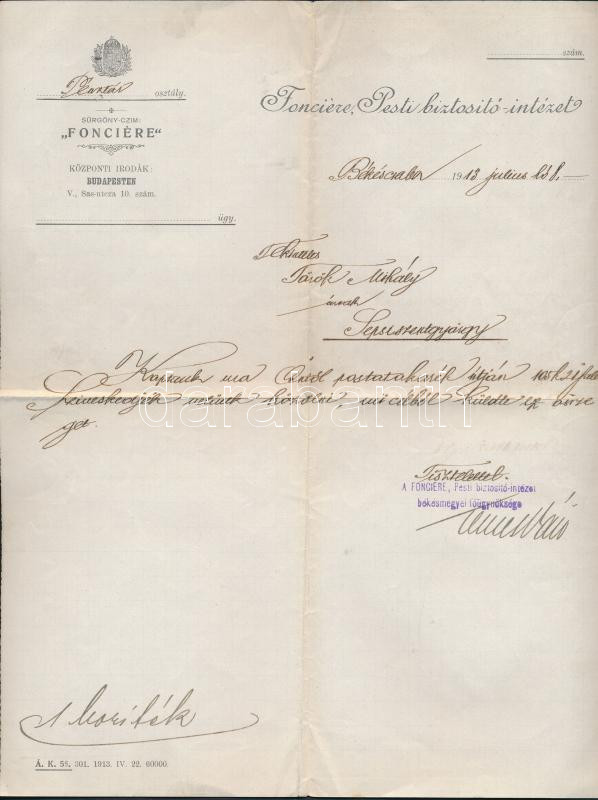 szám.
Pénztár osztály.
SÜRGÖNY-CZIM:
„FONCIÈRE"
KÖZPONTI IRODÁK:
BUDAPESTEN
V., Sas-utcza 10. szám.
ügy.
Foncière, Pesti biztositó-intézet
Békéscsaba 1913 julius hó 8.
Tekintetes
Török Mihály
úrnak
Sepsiszentgyörgy
Kaptunk ma Öntől postatakarék útján 105 K
szíveskedjék velünk közölni, mi célból küldte ez össze
get.
Tisztelettel.
A FONCIÈRE, Pesti biztositó-intézet
békésmegyei főügynöksége
1 boríték
Á. K. 55. 301. 1913. IV. 22. 60000.
darabanth